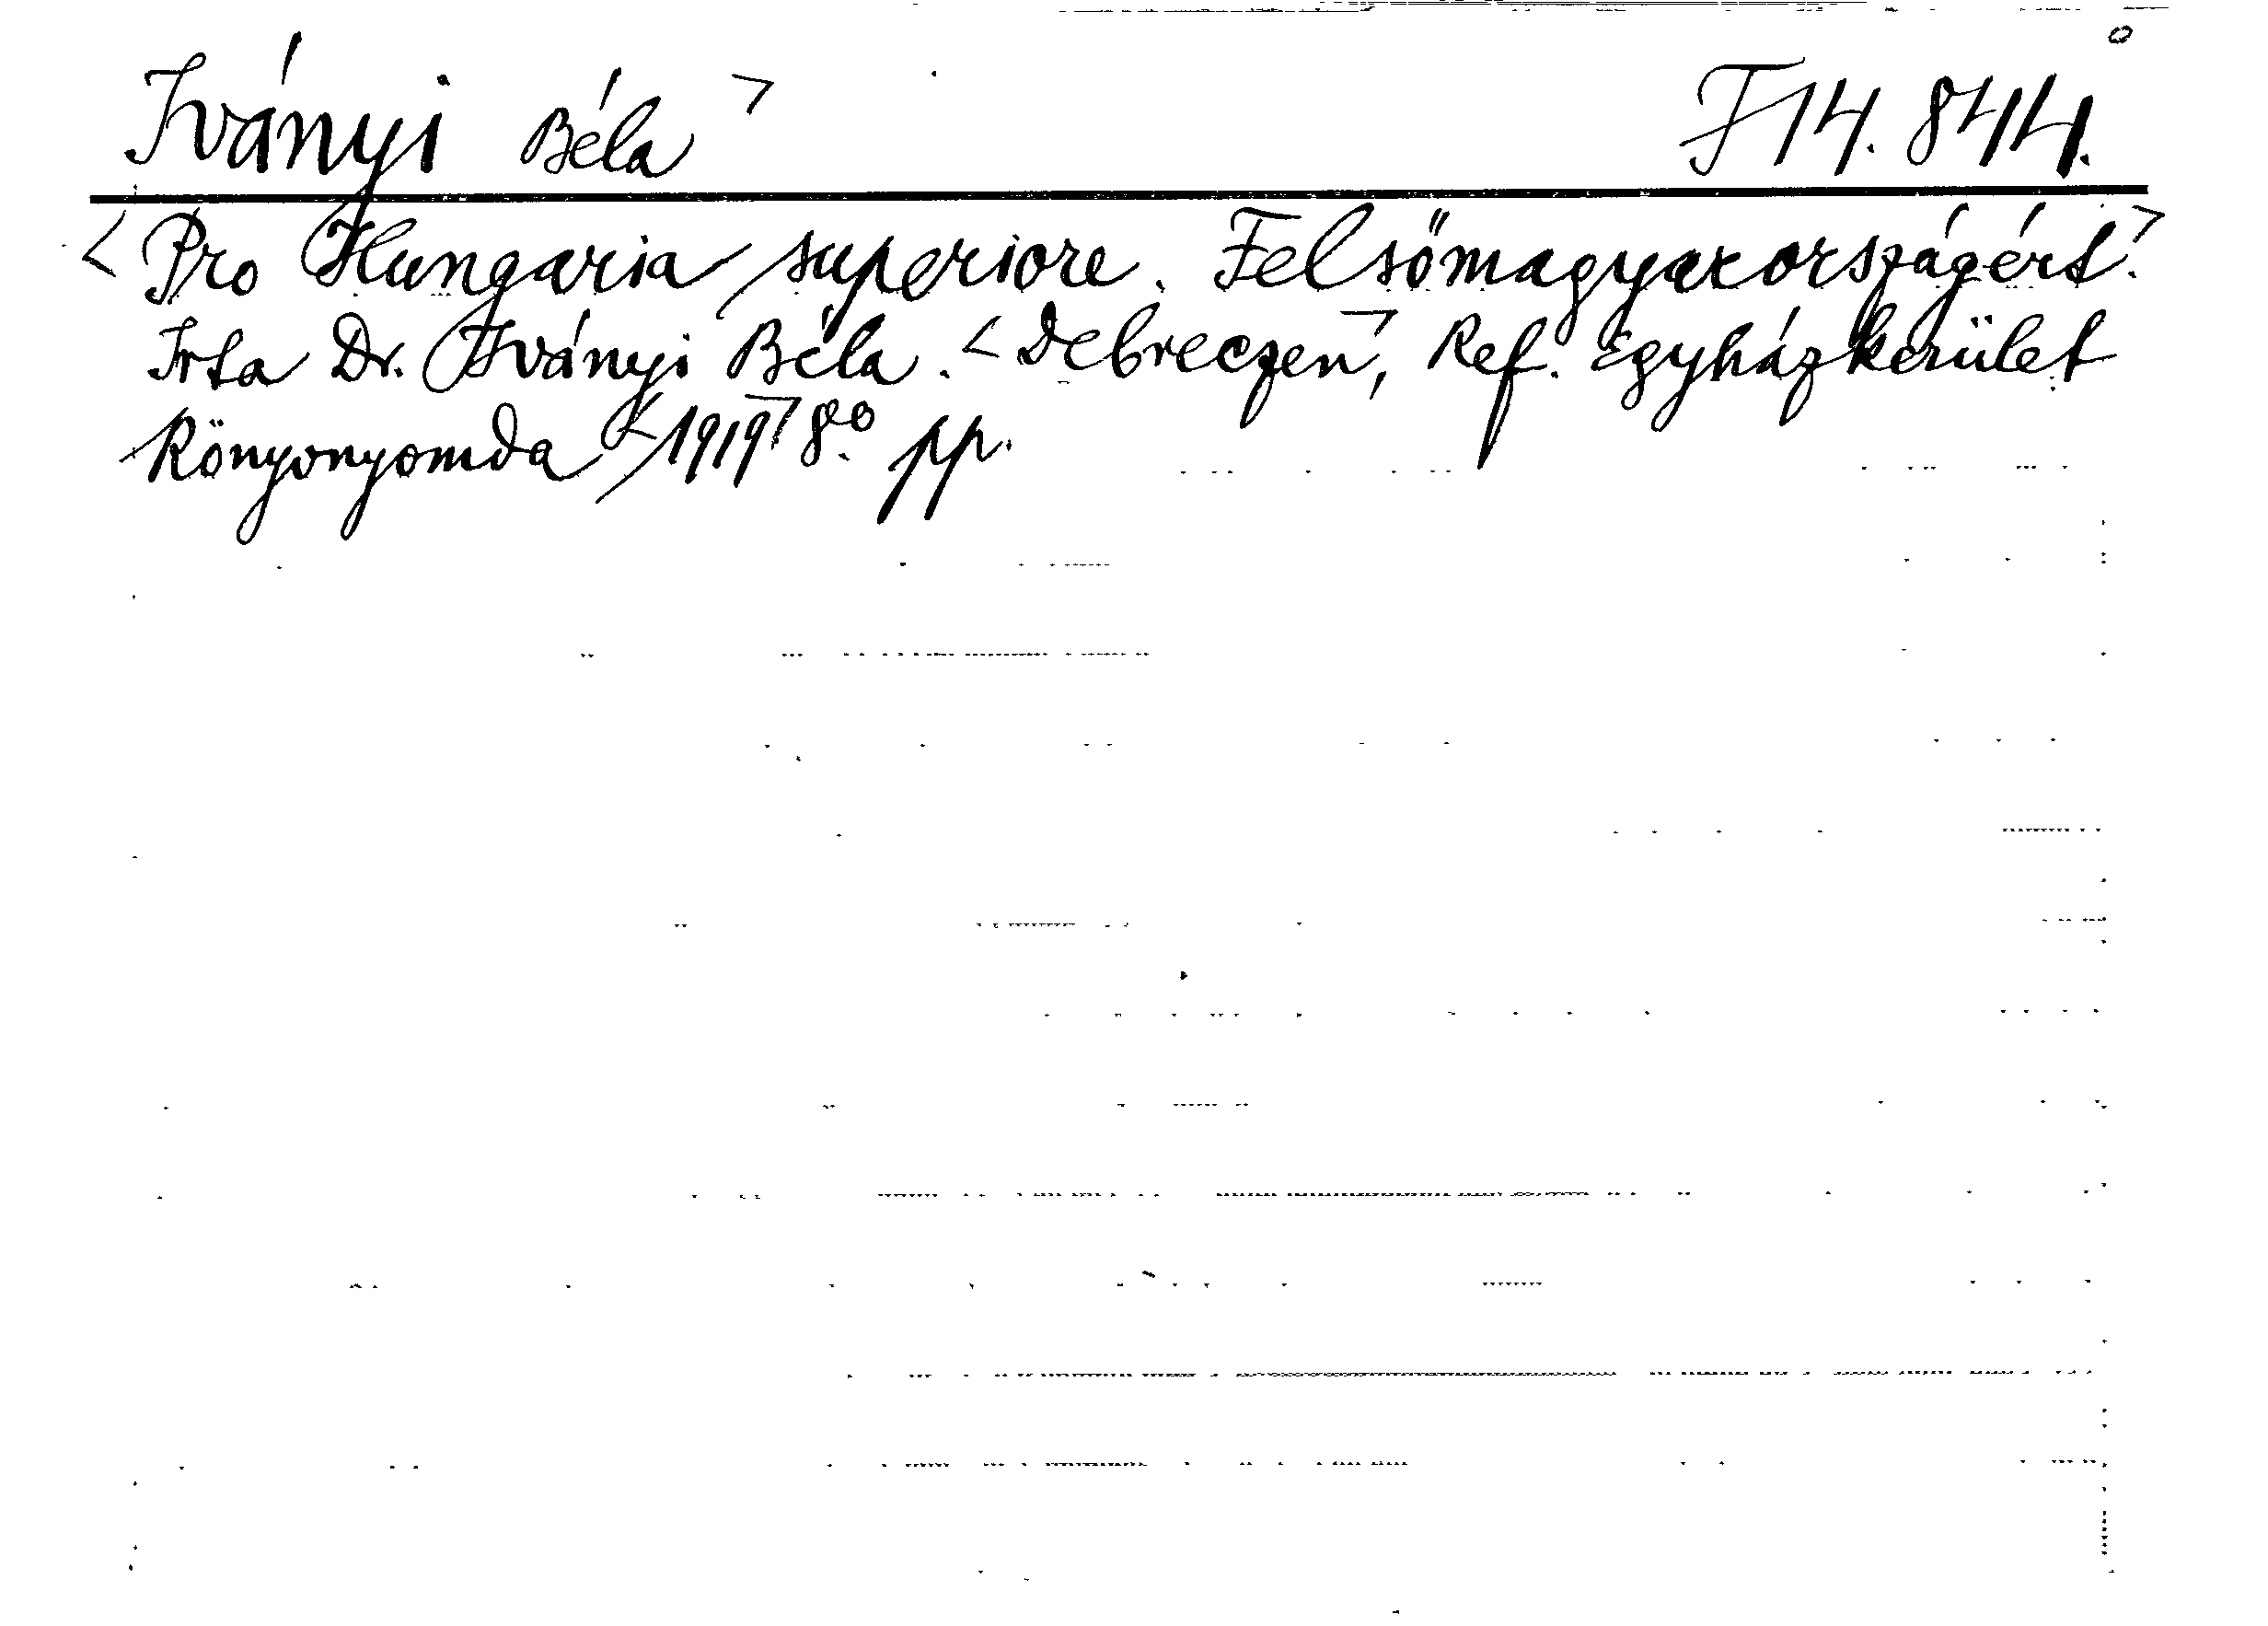 Iványi Béla ㄱ F 14. 844.
< Pro Hungaria superiore. Felsőmagyarországért.ㄱ
Irta Dr. Iványi Béla. < Debreczenㄱ, Ref. Egyházkerület
Könyvnyomda < 1919ㄱ 8º. pp.